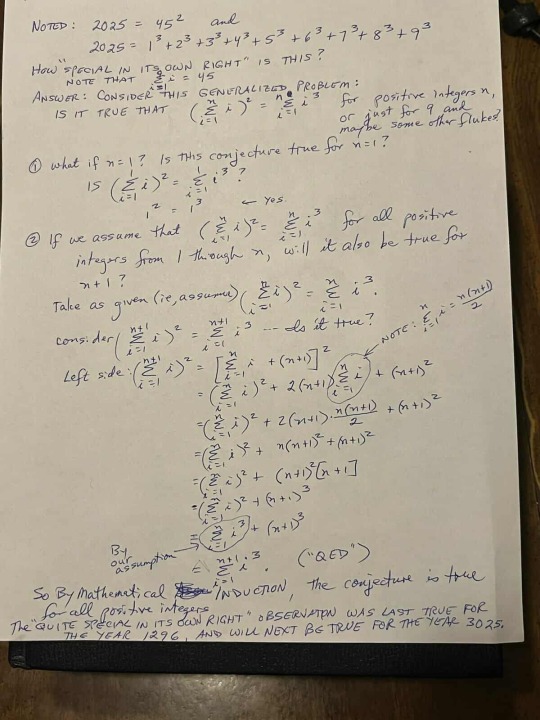 NOTED: 2025 = 45² and
2025 = 1³+2³+3³+4³+5³+6³+7³+8³+9³
HOW "SPECIAL IN ITS OWN RIGHT" IS THIS?
NOTE THAT Σ_{i=1}^{9} i = 45
ANSWER: CONSIDER THIS GENERALIZED PROBLEM:
IS IT TRUE THAT (Σ_{i=1}^{n} i)² = Σ_{i=1}^{n} i³ for positive integers n,
or just for 9 and
maybe some other flukes?
① what if n=1? Is this conjecture true for n=1?
IS (Σ_{i=1}^{1} i)² = Σ_{i=1}^{1} i³?
1² = 1³ ← Yes.
② If we assume that (Σ_{i=1}^{n} i)² = Σ_{i=1}^{n} i³ for all positive
integers from 1 through n, will it also be true for
n+1?
Take as given (ie, assume) (Σ_{i=1}^{n} i)² = Σ_{i=1}^{n} i³.
consider (Σ_{i=1}^{n+1} i)² = Σ_{i=1}^{n+1} i³ --- Is it true?
NOTE: Σ_{i=1}^{n} i = n(n+1)/2
Left side: (Σ_{i=1}^{n+1} i)² = [Σ_{i=1}^{n} i + (n+1)]²
= (Σ_{i=1}^{n} i)² + 2(n+1) Σ_{i=1}^{n} i + (n+1)²
= (Σ_{i=1}^{n} i)² + 2(n+1)·n(n+1)/2 + (n+1)²
= (Σ_{i=1}^{n} i)² + n(n+1)² + (n+1)²
= (Σ_{i=1}^{n} i)² + (n+1)²[n+1]
= (Σ_{i=1}^{n} i)² + (n+1)³
= Σ_{i=1}^{n} i³ + (n+1)³
By
our
assumption
= Σ_{i=1}^{n+1} i³. ("QED")
So By Mathematical INDUCTION, the conjecture is true
for all positive integers
The "QUITE SPECIAL IN ITS OWN RIGHT" OBSERVATON WAS LAST TRUE FOR
THE YEAR 1296, AND WILL NEXT BE TRUE FOR THE YEAR 3025.